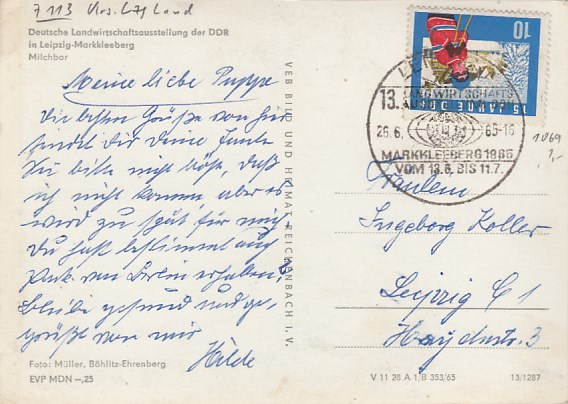 7113
Land
Deutsche Landwirtschaftsausstellung der DDR
in Leipzig-Markkleeberg
Milchbar
Meine liebe Puppe
die besten Grüße von hier
sendet dir deine Tante
bitte nicht böse, daß
ich nicht komme, aber es
wird zu spät für mich
Du hast bestimmt auch
von erhalten,
bleibe gesund und ge-
grüßt von mir
Hilde
Foto: Müller, Böhlitz-Ehrenberg
EVP MDN –,25
VEB BILD UND HEIMAT REICHENBACH I. V.
10
15 JAHRE DDR
LEIPZIG
13. LANDWIRTSCHAFTS-
AUSSTELLUNG DER DDR
26.6. 65-16
MARKKLEEBERG 1965
VOM 13.6. BIS 11.7.
1069
1,-
Fräulein
Ingeborg Koller
Leipzig C 1
Haydnstr. 3
V 11 28 A 1 B 353/65
13/1287